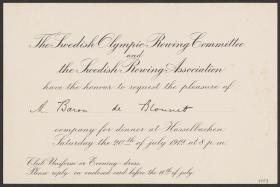 The Swedish Olympic Rowing Committee
and
the Swedish Rowing Association
have the honour to request the pleasure of
M Baron de Blonnet
company for dinner at Hasselbacken
Saturday the 20th of July 1912 at 8 p.m.
Club Uniform or Evening-dress.
Please reply on enclosed card before the 18th of july.